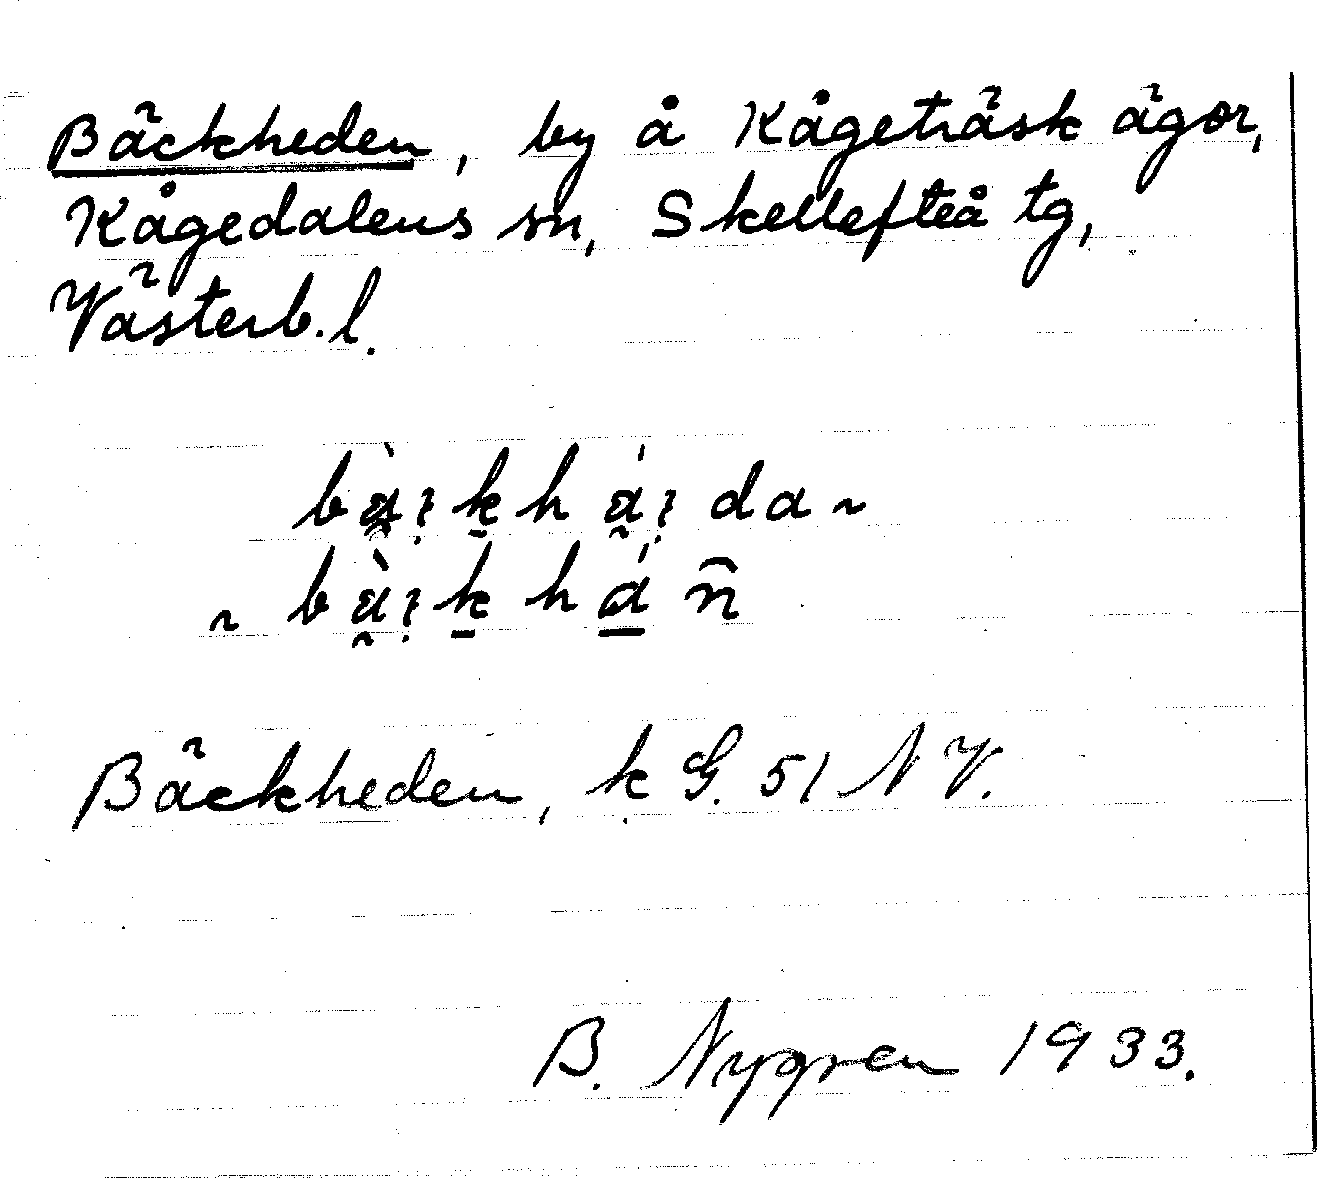 Bäckheden, by å Kågeträsk ägor,
Kågedalens sn, Skellefteå tg,
Västerb. l.
Bäckheden, k G. 51 NV.
B. Nygren 1933.